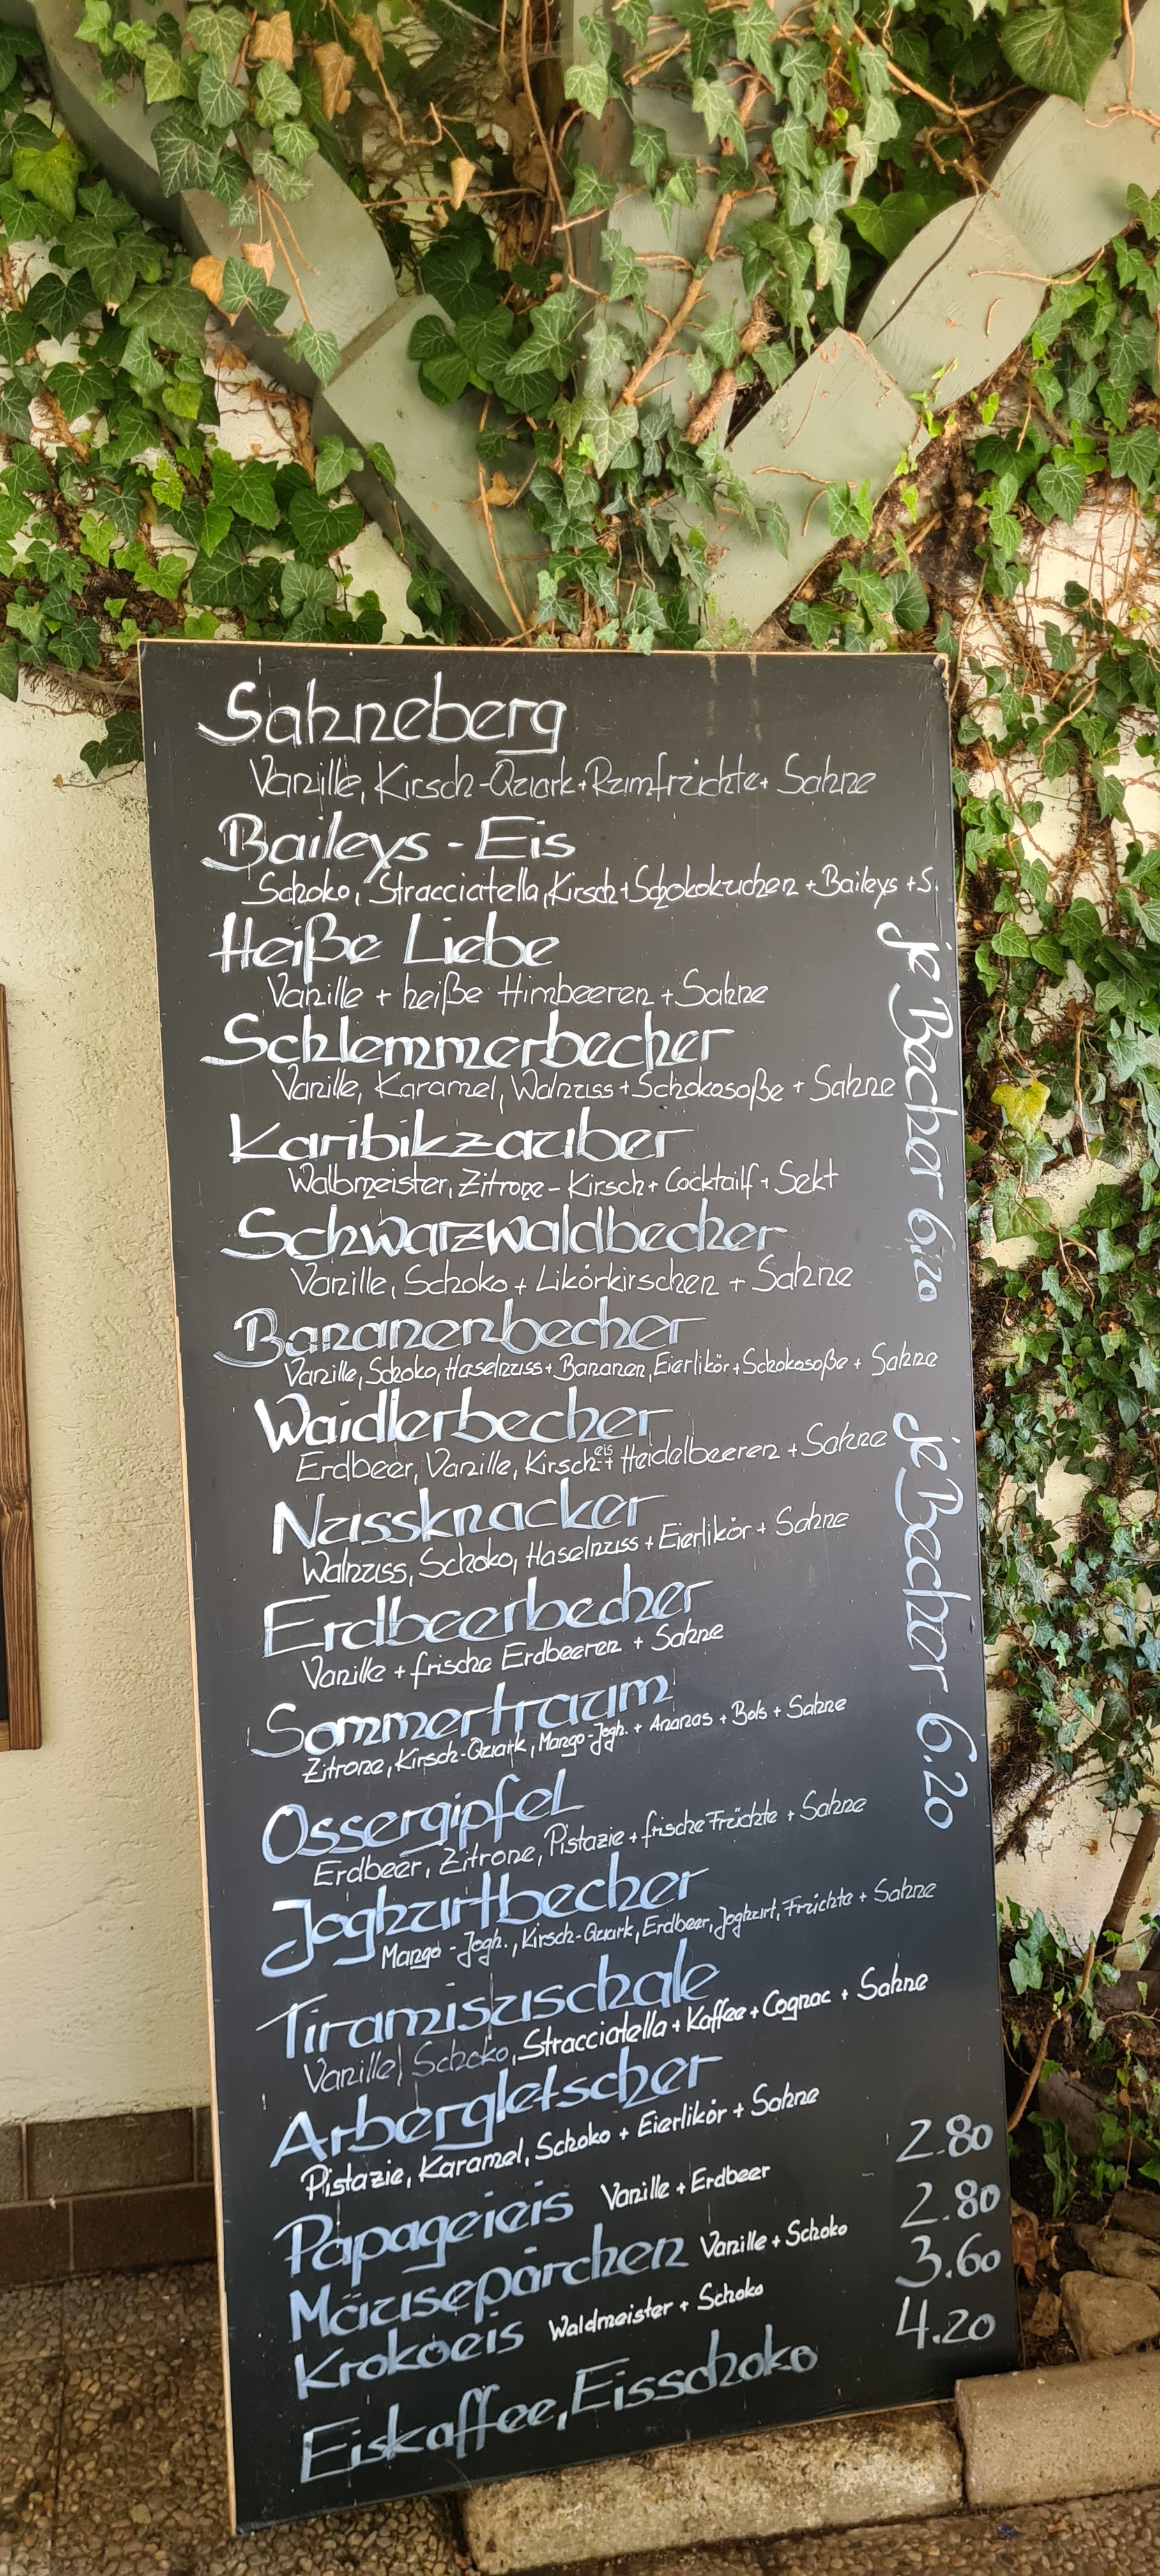 Sahneberg
Vanille, Kirsch-Quark+Rumfrüchte+ Sahne
Baileys - Eis
Schoko, Stracciatella, Kirsch+Schokokuchen +Baileys +S.
Heiße Liebe
Vanille + heiße Himbeeren +Sahne
Schlemmerbecher
Vanille, Karamel, Walnuss+Schokosoße + Sahne
Karibikzauber
Walbmeister, Zitrone-Kirsch+ Cocktailf + Sekt
Schwarzwaldbecher
Vanille, Schoko + Likörkirschen + Sahne
Bananenbecher
Vanille, Schoko, Haselnuss+ Bananen, Eierlikör+Schokosoße + Sahne
je Becher 6,20
Waidlerbecher
Erdbeer, Vanille, Kirscheis+ Heidelbeeren + Sahne
Nussknacker
Walnuss, Schoko, Haselnuss + Eierlikör + Sahne
Erdbeerbecher
Vanille + frische Erdbeeren + Sahne
Sommertraum
Zitrone, Kirsch-Quark, Mango-Jogh. + Ananas + Bols + Sahne
je Becher 6.20
Ossergipfel
Erdbeer, Zitrone, Pistazie + frische Früchte + Sahne
Joghurtbecher
Mango-Jogh., Kirsch-Quark, Erdbeer, Joghurt, Früchte + Sahne
Tiramisuschale
Vanille, Schoko, Stracciatella + Kaffee + Cognac + Sahne
Arbergletscher
Pistazie, Karamel, Schoko + Eierlikör + Sahne
Papageieis Vanille + Erdbeer 2.80
Mäusepärchen Vanille + Schoko 2.80
Krokoeis Waldmeister + Schoko 3.60
Eiskaffee, Eisschoko 4.20